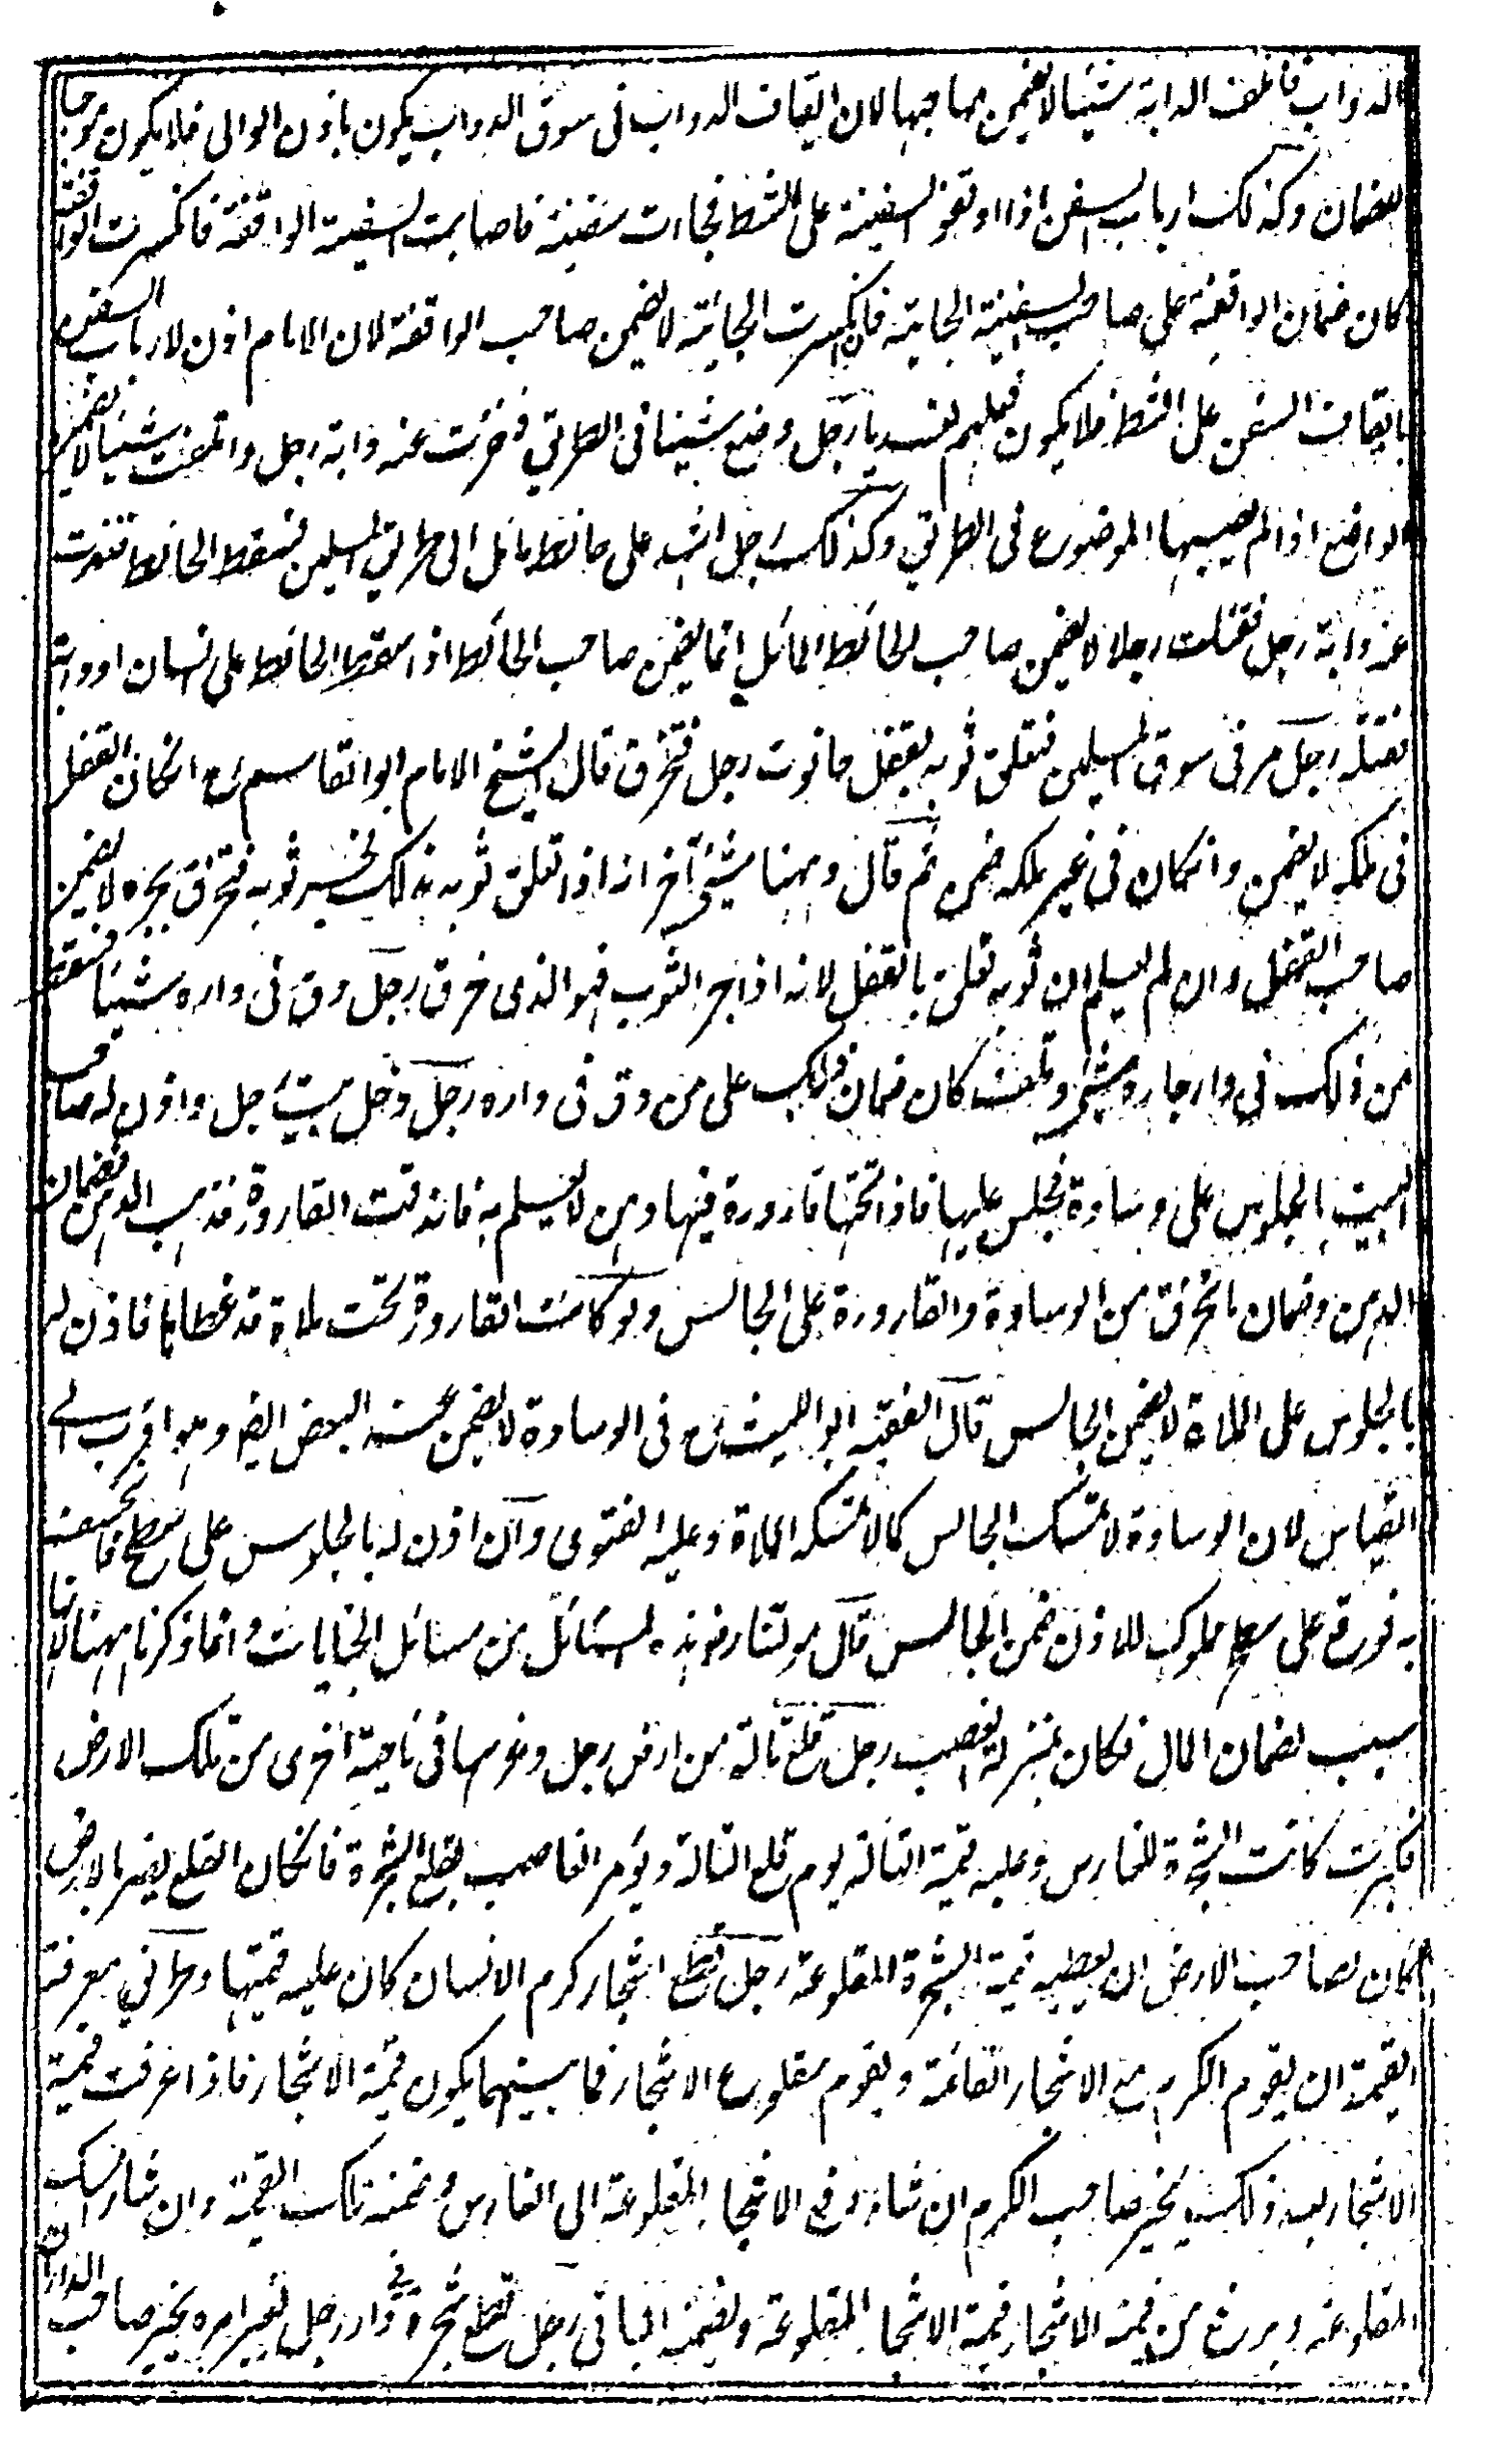 الدواب فاتلفت الدابة شيئا لا يضمن صاحبها لان ايقاف الدواب فى سوق الدواب يكون باذن الوالى فلا يكون موجبا
للضمان وكذلك ارباب السفن اذا اوقفوا السفينة على الشط فجاءت سفينة فاصابت السفينة الواقفة فانكسرت الواقفة
كان ضمان الواقفة على صاحب السفينة الجائية فان انكسرت الجائية لا يضمن صاحب الواقفة لان الامام اذن لارباب السفن
بايقاف السفن على الشط فلا يكون فعلهم تعديا رجل وضع شيئا فى الطريق فنفرت عنه دابة رجل واتلفت شيئا لا يضمن
الواضع اذا لم يصيبها الموضوع فى الطريق وكذلك رجل اشهد على حائط مائل الى طريق المسلمين فسقط الحائط فنفرت
عنه دابة رجل فقتلت رجلا لا يضمن صاحب الحائط المائل انما يضمن صاحب الحائط اذا سقط الحائط على انسان او دابة
فقتله رجل مر فى سوق المسلمين فتعلق ثوبه بقفل حانوت رجل فتخرق قال الشيخ الامام ابو القاسم رح انكان القفل
فى ملكه لا يضمن وانكان فى غير ملكه ضمن ثم قال وههنا شئ آخر انه اذا تعلق ثوبه بذلك فجر ثوبه فتخرق بجره لا يضمن
صاحب القفل وان لم يعلم ان ثوبه تعلق بالقفل لانه اذا جر الثوب فهو الذى خرق رجل دق فى داره شيئا فسقط
من ذلك فى دار جاره شئ وتلف كان ضمان ذلك على من دق فى داره رجل دخل بيت رجل واذن له صاحب
البيت بالجلوس على وسادة فجلس عليها فاذا تحتها قارورة فيها دهن لا يعلم به فاندقت القارورة فذهب الدهن فضمان
الدهن وضمان ما تخرق من الوسادة والقارورة على الجالس ولو كانت القارورة تحت ملاة قد غطاها فاذن له
بالجلوس على الملاة لا يضمن الجالس قال الفقيه ابو الليث رح فى الوسادة لا يضمن عند البعض ايضا وهو اقرب الى
القياس لان الوسادة لا تمسك الجالس كما لا تمسكه الملاة وعليه الفتوى وان اذن له بالجلوس على سطح فانخسف
به فوقع على مملوك للاذن ضمن الجالس قال مولنا رض هذه المسائل من مسائل الجنايات وانما ذكرنا ههنا لانها
سبب لضمان المال فكان بمنزلة الغصب رجل قلع تالة من ارض رجل وغرسها فى ناحية اخرى من تلك الارض
فكبرت كانت الشجرة للغارس وعليه قيمة التالة يوم قلع التالة ويؤمر الغاصب بقلع الشجرة فانكان القلع يضر بالارض
كان لصاحب الارض ان يعطيه قيمة الشجرة المقلوعة رجل قطع اشجار كرم الانسان كان عليه قيمتها وطريق معرفة
القيمة ان يقوم الكرم مع الاشجار القائمة ويقوم مقلوع الاشجار فما بينهما يكون قيمة الاشجار فاذا عرفت قيمة
الاشجار بعد ذلك يخير صاحب الكرم ان شاء دفع الاشجار المقلوعة الى الغارس وضمنه تلك القيمة وان شاء امسك
المقلوعة ويرفع من قيمة الاشجار قيمة الاشجار المقلوعة ويضمنه الباقى رجل قطع شجرة فى دار رجل بغير امره يخير صاحب الدار ان